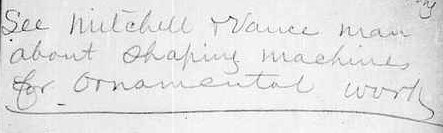 See Mitchell & Vance man
about shaping machines
for ornamental work